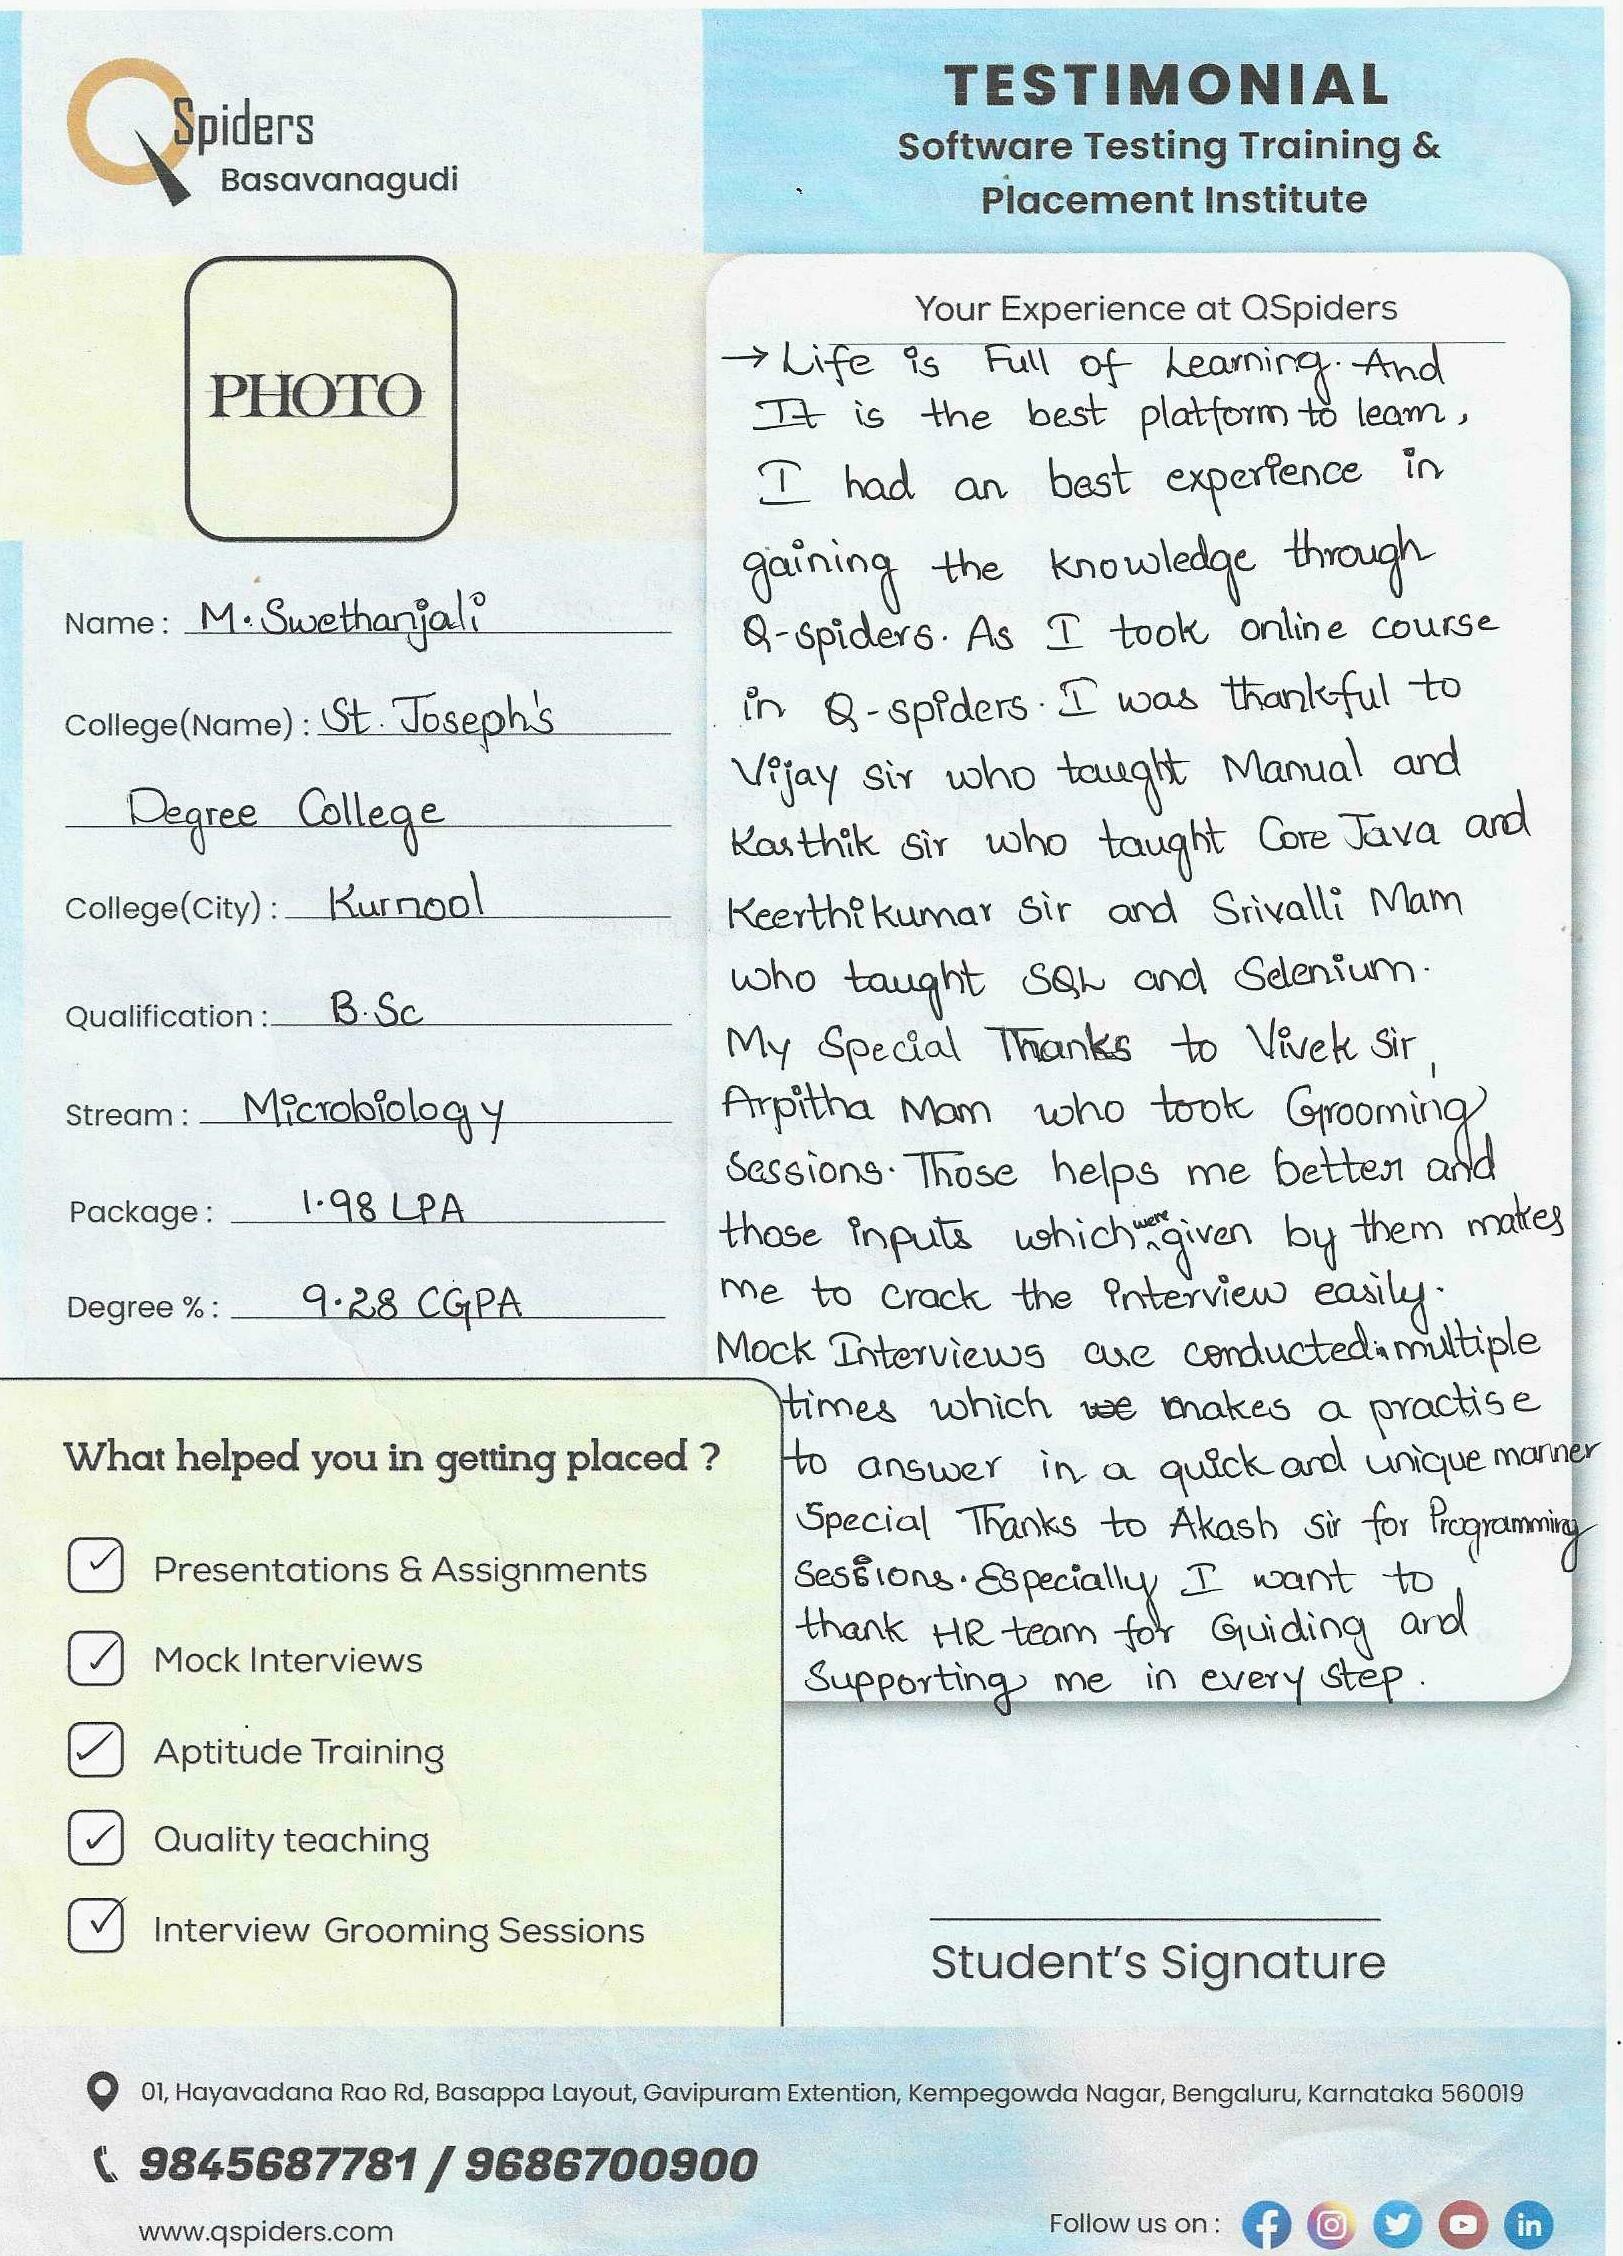 QSpiders
Basavanagudi
TESTIMONIAL
Software Testing Training &
Placement Institute
PHOTO
Name : M. Swethanjali
College(Name) : St. Joseph's
Degree College
College(City) : Kurnool
Qualification : B.Sc
Stream : Microbiology
Package : 1.98 LPA
Degree % : 9.28 CGPA
Your Experience at QSpiders
→ Life is Full of Learning. And
It is the best platform to learn,
I had an best experience in
gaining the knowledge through
Q-spiders. As I took online course
in Q-spiders. I was thankful to
Vijay sir who taught Manual and
Karthik sir who taught Core Java and
Keerthikumar sir and Srivalli Mam
who taught SQL and Selenium.
My Special Thanks to Vivek sir,
Arpitha Mam who took Grooming
Sessions. Those helps me better and
those inputs which were given by them makes
me to crack the interview easily.
Mock Interviews are conducted multiple
times which we makes a practise
to answer in a quick and unique manner
Special Thanks to Akash sir for Programming
Sessions. Especially I want to
thank HR team for Guiding and
Supporting me in every step.
What helped you in getting placed ?
✓ Presentations & Assignments
✓ Mock Interviews
✓ Aptitude Training
✓ Quality teaching
✓ Interview Grooming Sessions
Student's Signature
01, Hayavadana Rao Rd, Basappa Layout, Gavipuram Extention, Kempegowda Nagar, Bengaluru, Karnataka 560019
9845687781 / 9686700900
www.qspiders.com
Follow us on :